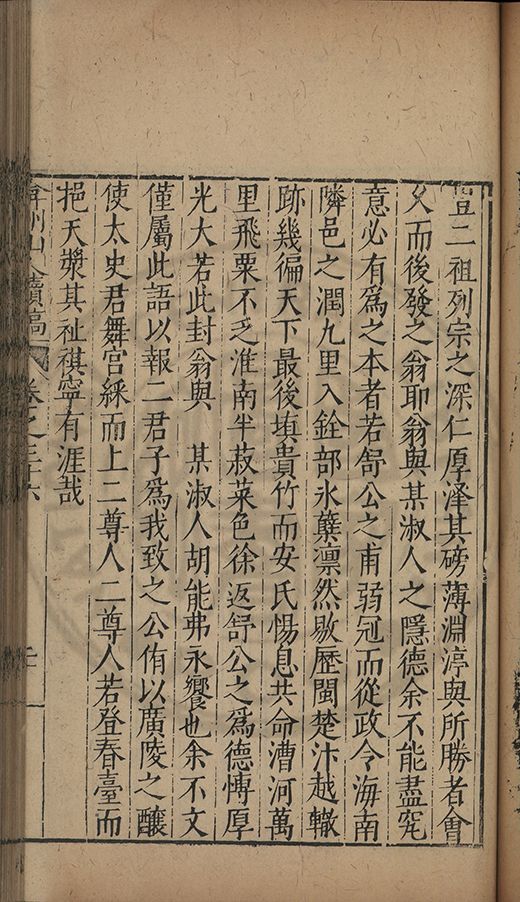 豈二祖列宗之深仁厚澤其磅薄淵渟與所勝者會
久而後發之翁耶翁與某淑人之隱德余不能盡究
意必有爲之本者若舒公之甫弱冠而從政令海南
隣邑之潤九里入銓部氷蘗凛然敭歷閩楚汴越轍
跡幾徧天下最後填貴竹而安氏惕息共命漕河萬
里飛粟不乏淮南半菽菜色徐返舒公之爲德慱厚
光大若此封翁與　某淑人胡能弗永饗也余不文
僅屬此語以報二君子爲我致之公侑以廣陵之釀
使太史君舞宮綵而上二尊人二尊人若登春臺而
挹天漿其祉祺寧有涯哉
弇州山人續稿　卷之三十六　二十